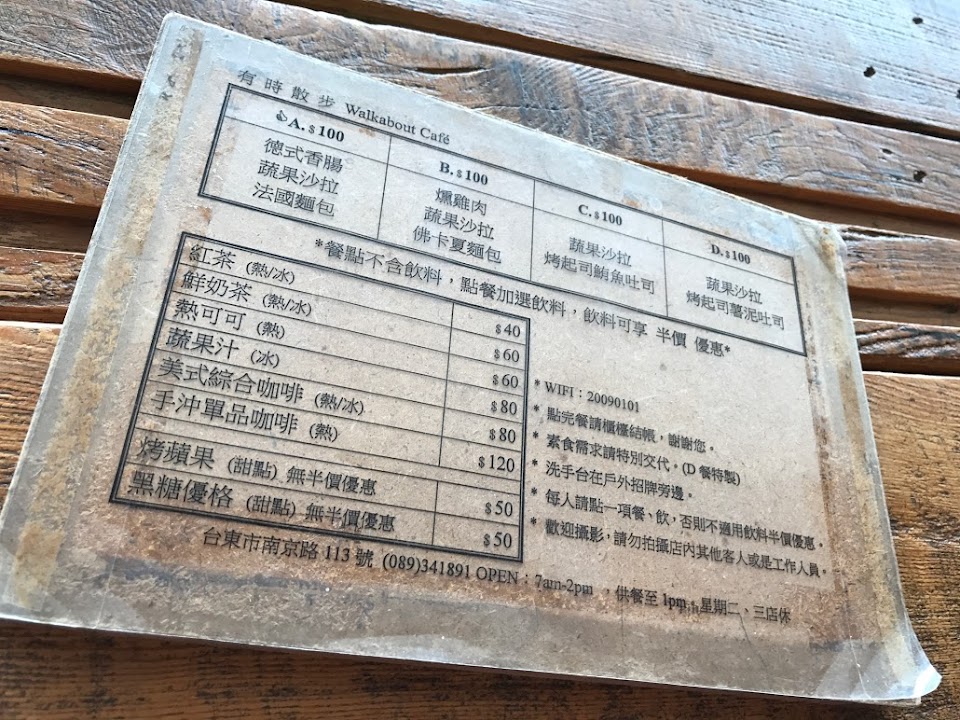 有時散步 Walkabout Café
👍A. $100
德式香腸
蔬果沙拉
法國麵包
B. $100
燻雞肉
蔬果沙拉
佛卡夏麵包
C. $100
蔬果沙拉
烤起司鮪魚吐司
D. $100
蔬果沙拉
烤起司薯泥吐司
*餐點不含飲料，點餐加選飲料，飲料可享 半價 優惠*
紅茶 (熱/冰) $40
鮮奶茶 (熱/冰) $60
熱可可 (熱) $60
蔬果汁 (冰) $80
美式綜合咖啡 (熱/冰) $80
手沖單品咖啡 (熱) $120
烤蘋果 (甜點) 無半價優惠 $50
黑糖優格 (甜點) 無半價優惠 $50
* WIFI：20090101
* 點完餐請櫃檯結帳，謝謝您。
* 素食需求請特別交代。(D 餐特製)
* 洗手台在戶外招牌旁邊。
* 每人請點一項餐、飲，否則不適用飲料半價優惠。
* 歡迎攝影，請勿拍攝店內其他客人或是工作人員。
台東市南京路 113 號 (089)341891 OPEN：7am-2pm ，供餐至 1pm，星期二、三店休